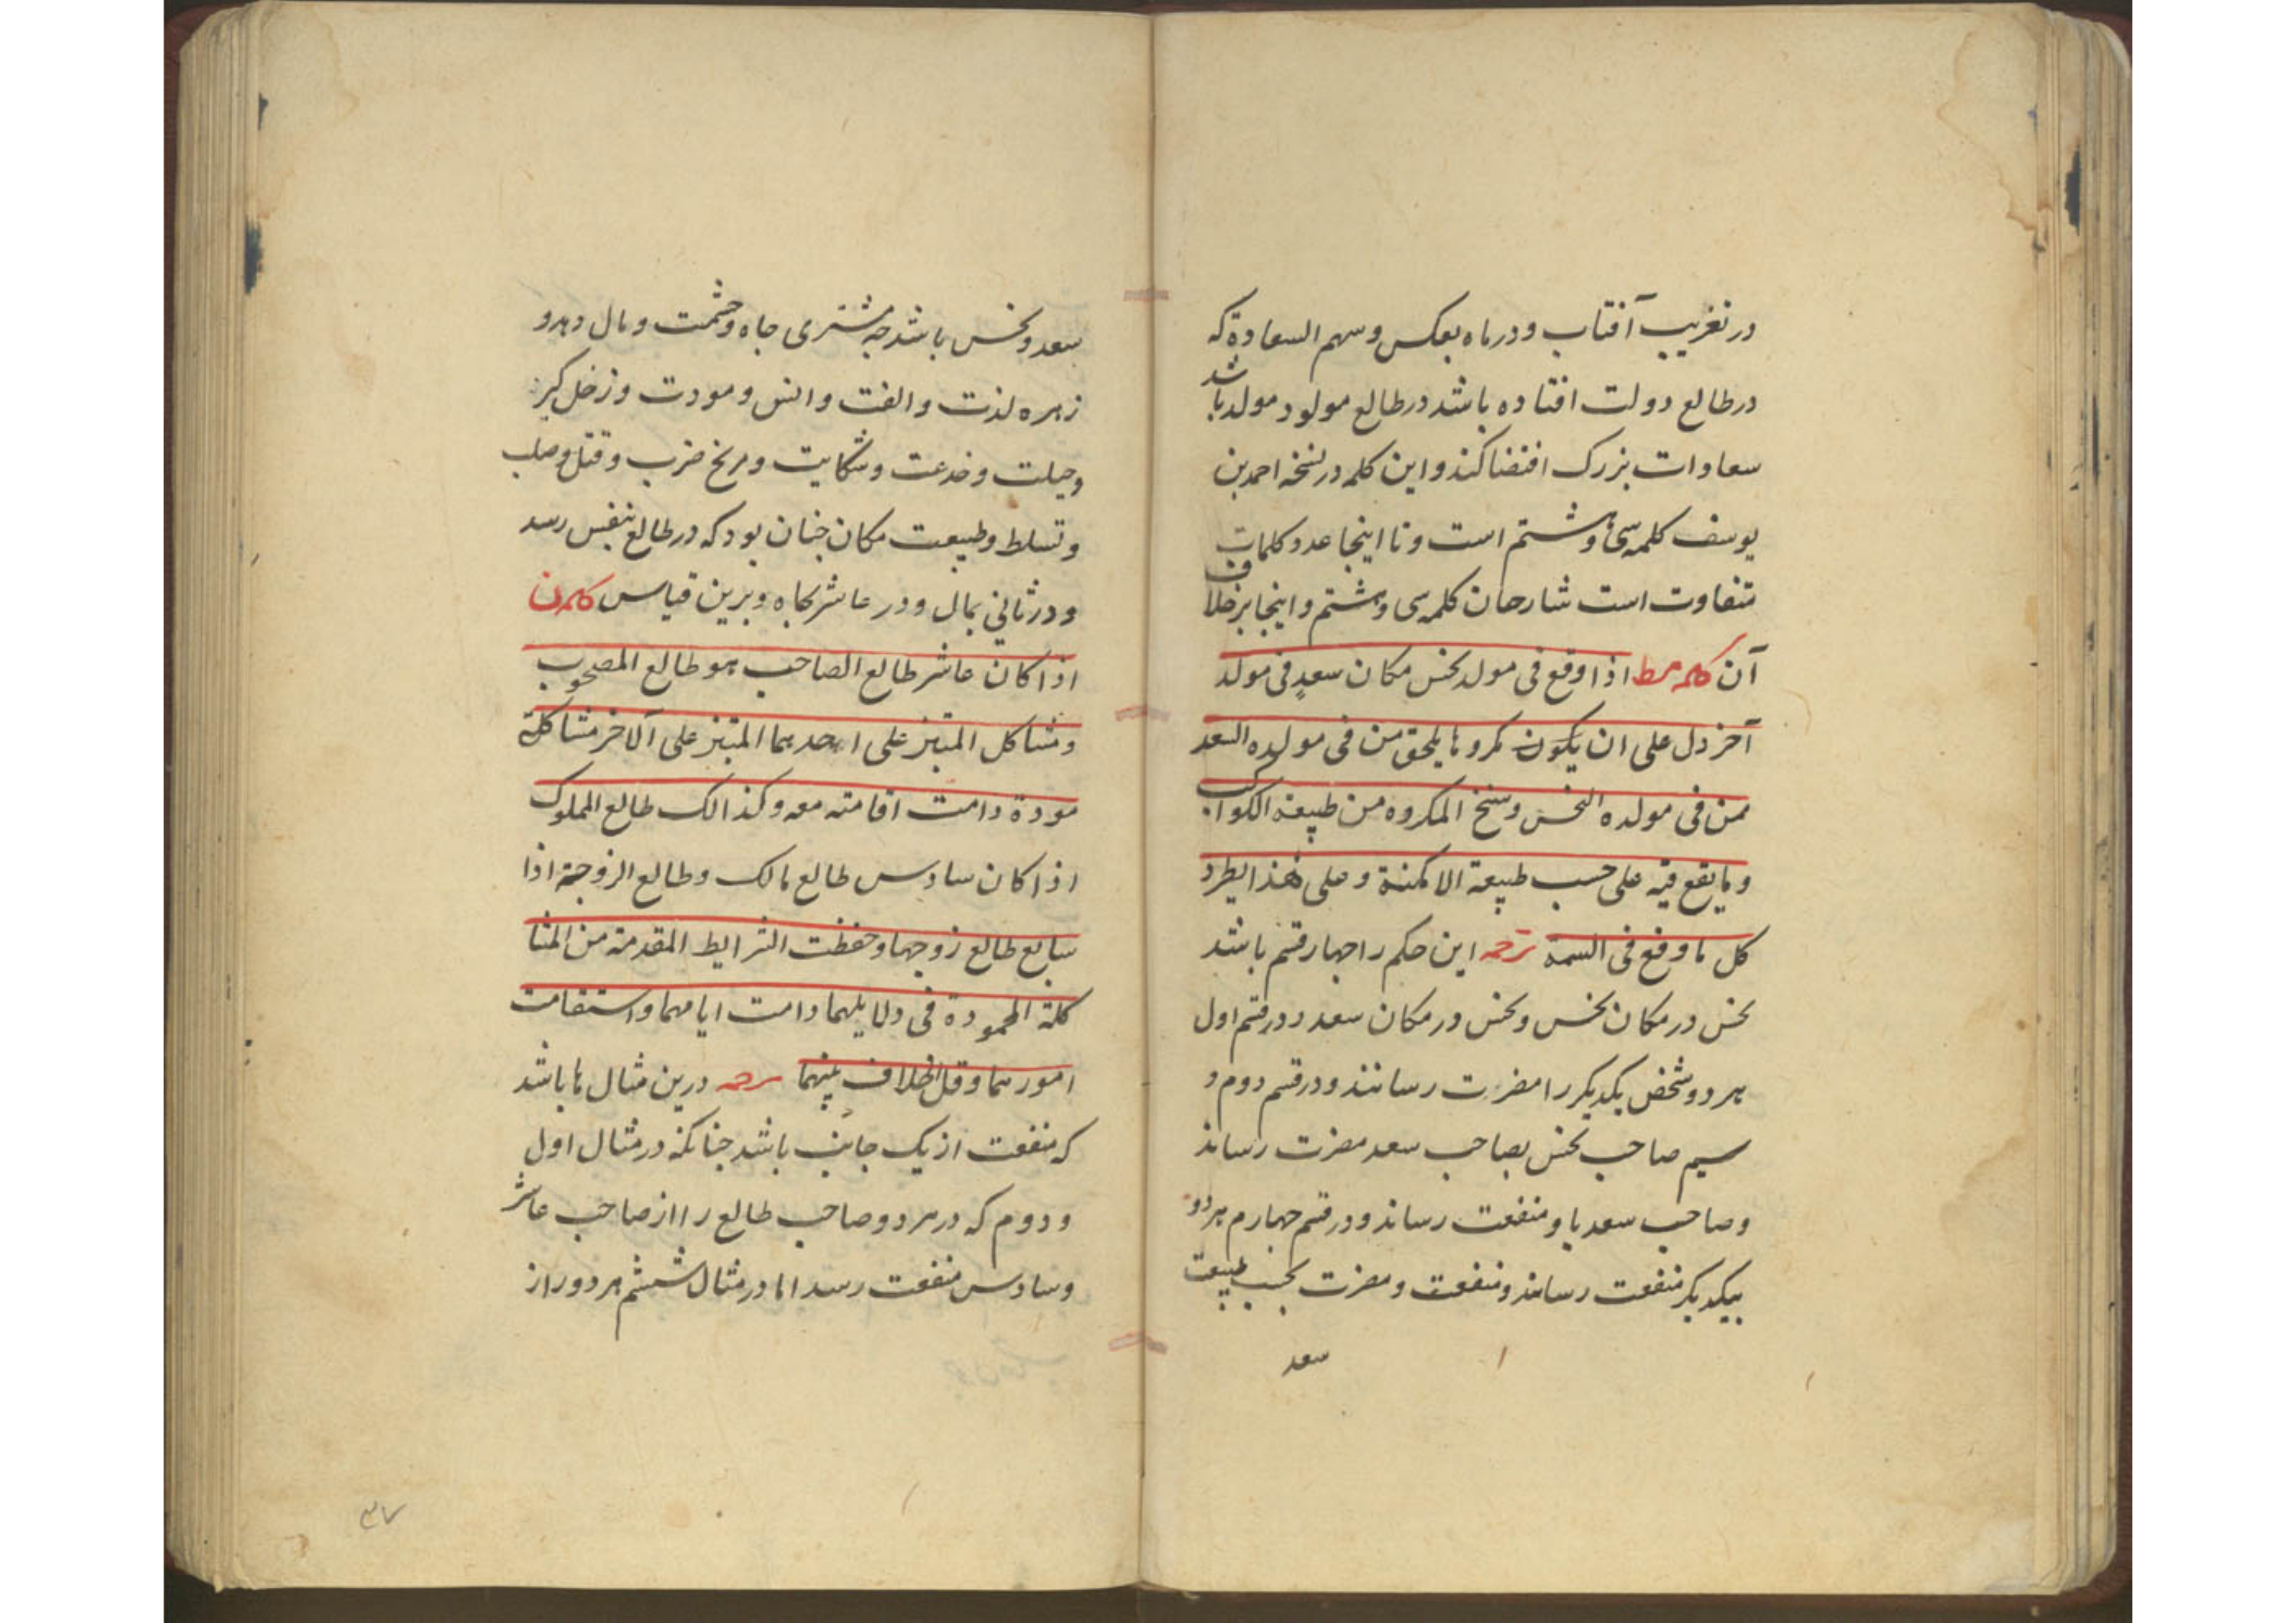 در تغریب آفتاب و در ماه بعکس و سهم السعادة که
در طالع دولت افتاده باشد در طالع مولود مولد باشد
سعادات بزرک اقتضا کند و این کلمه در نسخه احمد بن
یوسف کلمه سی و هشتم است و تا اینجا عدد کلمات
متفاوت است شارحان کلمه سی و هشتم و اینجا بر خلاف
آن کلمه مط اذا وقع فی مولد نحس مکان سعدٍ فی مولد
آخر دل علی ان یکون مکروها یلحق من فی مولده السعد
ممن فی مولده النحس وسنخ المکروه من طبیعة الکواکب
و ما یقع فیه علی حسب طبیعة الامکنة و علی هذا یطرد
کل ما وقع فی السمة ترجمه این حکم را چهار قسم باشد
نحس در مکان نحس و نحس در مکان سعد در قسم اول
هر دو شخص یکدیکر را مضرت رسانند و در قسم دوم و
سیم صاحب نحس بصاحب سعد مضرت رساند
و صاحب سعد باو منفعت رساند و در قسم چهارم هر دو
بیکدیکر منفعت رسانند و منفعت و مضرت بحسب طبیعت
سعد
سعد و نحس باشد چه مشتری جاه و حشمت و مال دهد و
زهره لذت و الفت و انس و مودت و زحل کبر
و حیلت و خدعت و شکایت و مریخ ضرب و قتل و صلب
و تسلط و طبیعت مکان چنان بود که در طالع بنفس رسد
و در ثانی بمال و در عاشر بجاه و برین قیاس کلمه ن
اذا کان عاشر طالع الصاحب هو طالع المصحوب
و مشاکل المبتز علی احدهما المبتز علی الآخر مشاکلة
مودة دامت اقامته معه و کذالک طالع المملوک
اذا کان سادس طالع مالک و طالع الزوجة اذا
سابع طالع زوجها و حفظت الشرایط المقدمة من المشا
کلة المحمودة فی دلایلهما دامت ایامهما و استقامت
امورهما و قل الخلاف بینهما ترجمه درین مثال ها باشد
که منفعت از یک جانب باشد چنانکه در مثال اول
و دوم که در هر دو صاحب طالع را از صاحب عاشر
و سادس منفعت رسد اما در مثال ششم هر دو را از
۳۷